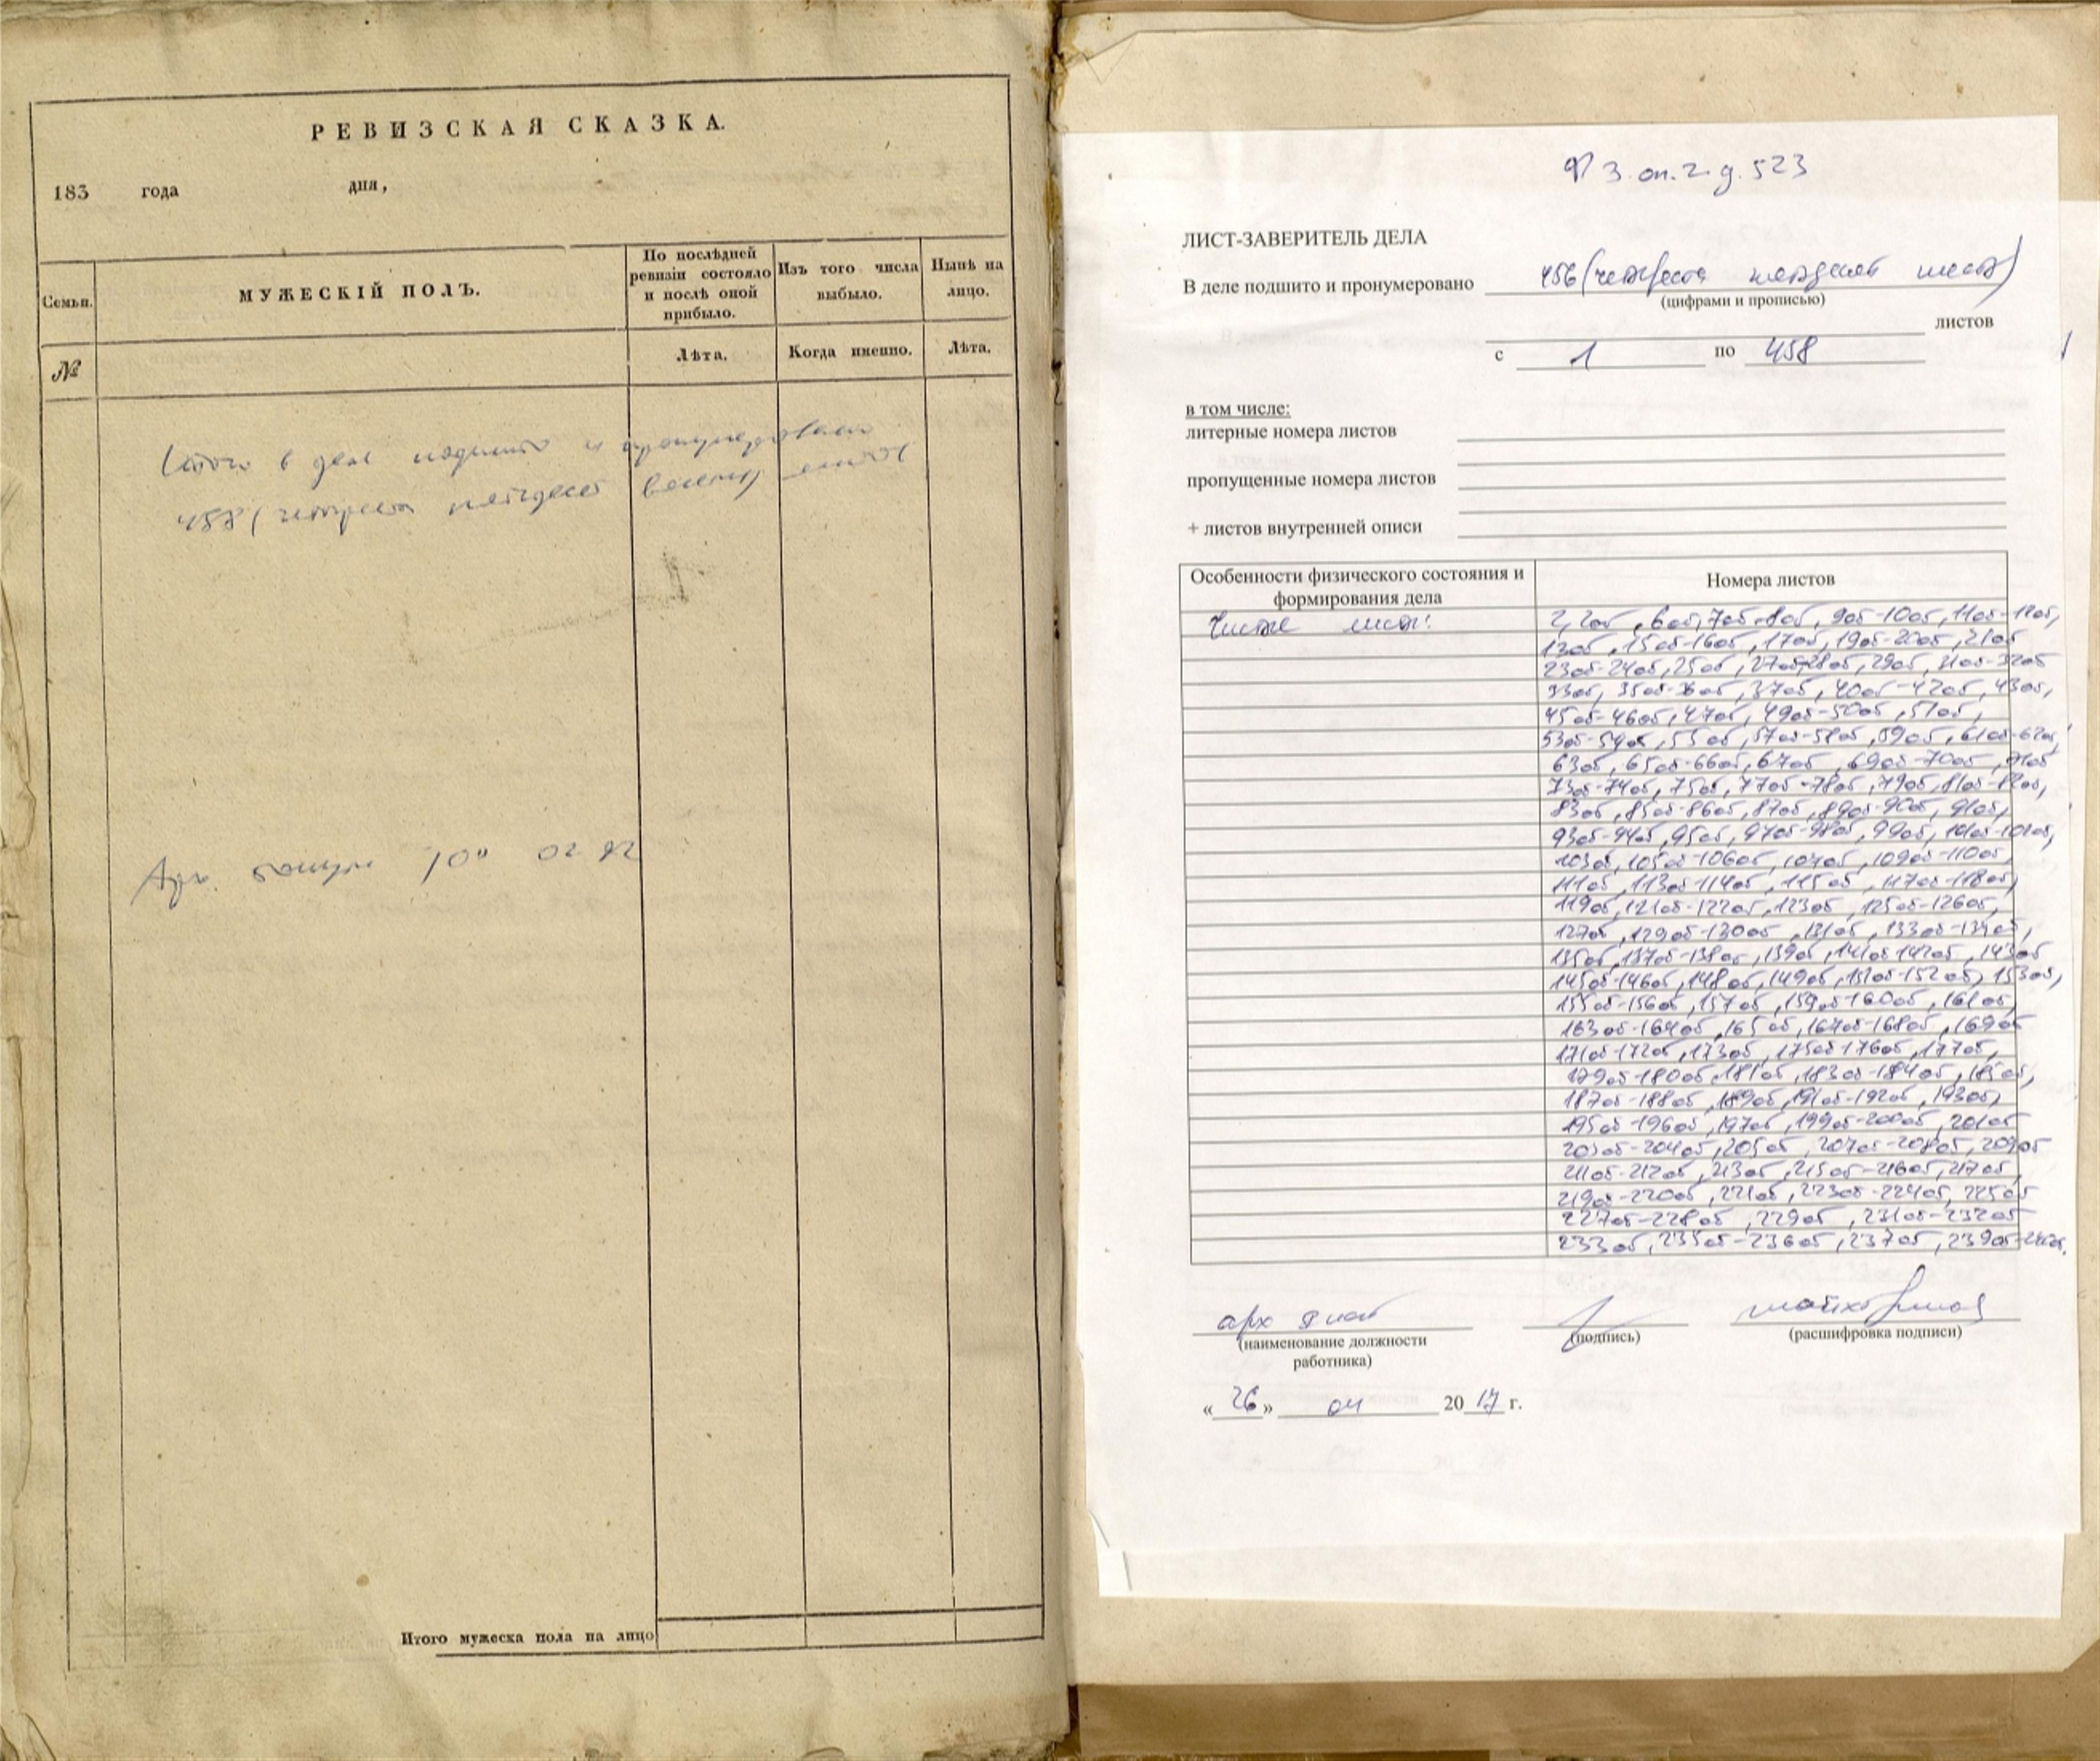 РЕВИЗСКАЯ СКАЗКА.
183 года дня,
Семьи.
МУЖЕСКІЙ ПОЛЪ.
По послѣдней ревизіи состояло и послѣ оной прибыло.
Изъ того числа выбыло.
Нынѣ на лицо.
№
Лѣта.
Когда именно.
Лѣта.
Итого в деле подшито и пронумеровано
458 (четыреста пятьдесят восемь) листов
Арх. 10" 02 92
Итого мужеска пола на лицо
Ф 3. оп. 2. д. 523
ЛИСТ-ЗАВЕРИТЕЛЬ ДЕЛА
В деле подшито и пронумеровано 456 (четыреста пятьдесят шесть)
(цифрами и прописью)
листов
с 1 по 458
в том числе:
литерные номера листов
пропущенные номера листов
+ листов внутренней описи
Особенности физического состояния и
формирования дела
Номера листов
Чистые листы:
2, 2об, 6об, 7об-8об, 9об-10об, 11об-12об,
13об, 15об-16об, 17об, 19об-20об, 21об
23об-24об, 25об, 27об-28об, 29об, 31об-32об
33об, 35об-36об, 37об, 40об-42об, 43об,
45об-46об, 47об, 49об-50об, 51об,
53об-54об, 55об, 57об-58об, 59об, 61об-62об,
63об, 65об-66об, 67об, 69об-70об, 71об
73об-74об, 75об, 77об-78об, 79об, 81об-82об,
83об, 85об-86об, 87об, 89об-90об, 91об,
93об-94об, 95об, 97об-98об, 99об, 101об-102об,
103об, 105об-106об, 107об, 109об-110об,
111об, 113об-114об, 115об, 117об-118об,
119об, 121об-122об, 123об, 125об-126об,
127об, 129об-130об, 131об, 133об-134об,
135об, 137об-138об, 139об, 141об-142об, 143об
145об-146об, 148об, 149об, 151об-152об, 153об,
155об-156об, 157об, 159об-160об, 161об,
163об-164об, 165об, 167об-168об, 169об
171об-172об, 173об, 175об-176об, 177об,
179об-180об, 181об, 183об-184об, 185об,
187об-188об, 189об, 191об-192об, 193об,
195об-196об, 197об, 199об-200об, 201об
203об-204об, 205об, 207об-208об, 209об
211об-212об, 213об, 215об-216об, 217об,
219об-220об, 221об, 223об-224об, 225об
227об-228об, 229об, 231об-232об
233об, 235об-236об, 237об, 239об-240об,
арх
(наименование должности
работника)
(подпись)
(расшифровка подписи)
«26» 04 2017 г.